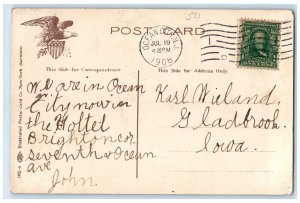 50
POST CARD
OCEAN CITY, N.J.
JUL 19
4-30PM
1908
This Side for Correspondence
This Side for Address Only.
we are in Ocean
City now in
the Hottel
Brighton cor
seventh & Ocean
ave
John
Karl Wieland.
Gladbrook.
Iowa.
Illustrated Postal Card Co. New York-Germany.